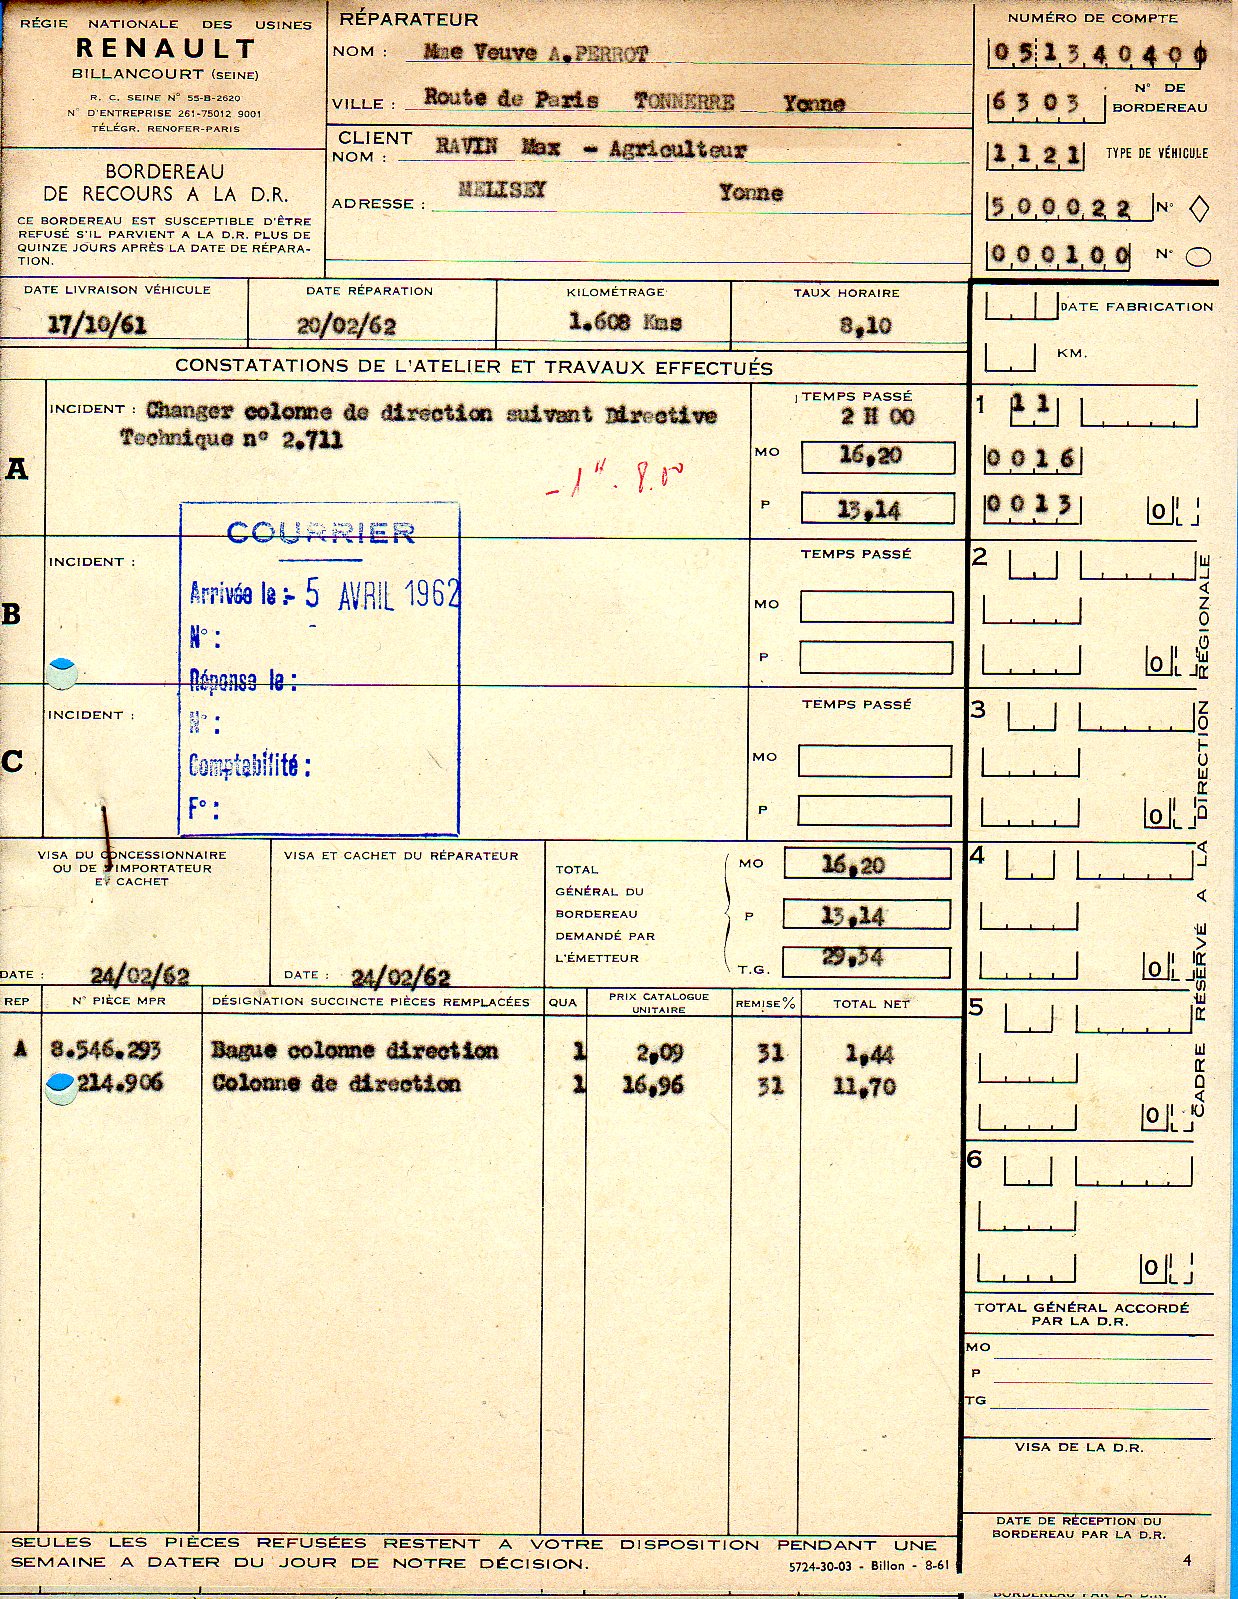 RÉGIE NATIONALE DES USINES
RENAULT
BILLANCOURT (SEINE)
R. C. SEINE N° 55-B-2620
N° D'ENTREPRISE 261-75012 9001
TÉLÉGR. RENOFER-PARIS
BORDEREAU
DE RECOURS A LA D.R.
CE BORDEREAU EST SUSCEPTIBLE D'ÊTRE
REFUSÉ S'IL PARVIENT A LA D.R. PLUS DE
QUINZE JOURS APRÈS LA DATE DE RÉPARA-
TION.
RÉPARATEUR
NOM : Mme Veuve A.PERROT
VILLE : Route de Paris TONNERRE Yonne
CLIENT
NOM : RAVIN Max - Agriculteur
MELISEY Yonne
ADRESSE :
NUMÉRO DE COMPTE
051340400
6303 N° DE
BORDEREAU
1121 TYPE DE VÉHICULE
500022 N°
000100 N°
DATE LIVRAISON VÉHICULE
17/10/61
DATE RÉPARATION
20/02/62
KILOMÉTRAGE
1.608 Kms
TAUX HORAIRE
8,10
DATE FABRICATION
KM.
CONSTATATIONS DE L'ATELIER ET TRAVAUX EFFECTUÉS
A
INCIDENT : Changer colonne de direction suivant Directive
Technique n° 2.711
-1H. 8.00
TEMPS PASSÉ
2 H 00
MO 16,20
P 13,14
1 11
0016
0013 0
COURRIER
Arrivée le :- 5 AVRIL 1962
N° :
Réponse le :
N° :
Comptabilité :
F° :
B
INCIDENT :
TEMPS PASSÉ
MO
P
2
0
C
INCIDENT :
TEMPS PASSÉ
MO
P
3
0
VISA DU CONCESSIONNAIRE
OU DE L'IMPORTATEUR
ET CACHET
DATE : 24/02/62
VISA ET CACHET DU RÉPARATEUR
DATE : 24/02/62
TOTAL
GÉNÉRAL DU
BORDEREAU
DEMANDÉ PAR
L'ÉMETTEUR
MO 16,20
P 13,14
T.G. 29,34
4
0
REP N° PIÈCE MPR DÉSIGNATION SUCCINCTE PIÈCES REMPLACÉES QUA PRIX CATALOGUE UNITAIRE REMISE% TOTAL NET
A 8.546.293 Bague colonne direction 1 2,09 31 1,44
214.906 Colonne de direction 1 16,96 31 11,70
5
0
6
0
CADRE RÉSERVÉ A LA DIRECTION RÉGIONALE
TOTAL GÉNÉRAL ACCORDÉ
PAR LA D.R.
MO
P
TG
VISA DE LA D.R.
DATE DE RÉCEPTION DU
BORDEREAU PAR LA D.R.
4
SEULES LES PIÈCES REFUSÉES RESTENT A VOTRE DISPOSITION PENDANT UNE
SEMAINE A DATER DU JOUR DE NOTRE DÉCISION.
5724-30-03 - Billon - 8-61
BORDEREAU PAR LA D.R.